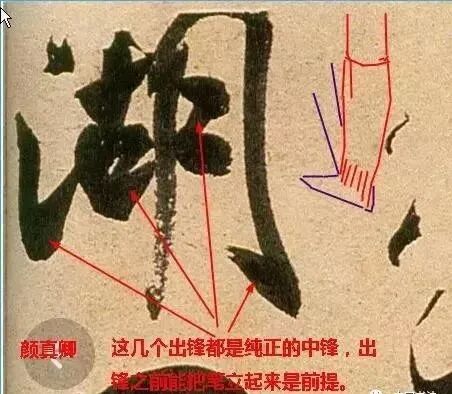 湖
颜真卿
这几个出锋都是纯正的中锋，出
锋之前能把笔立起来是前提。